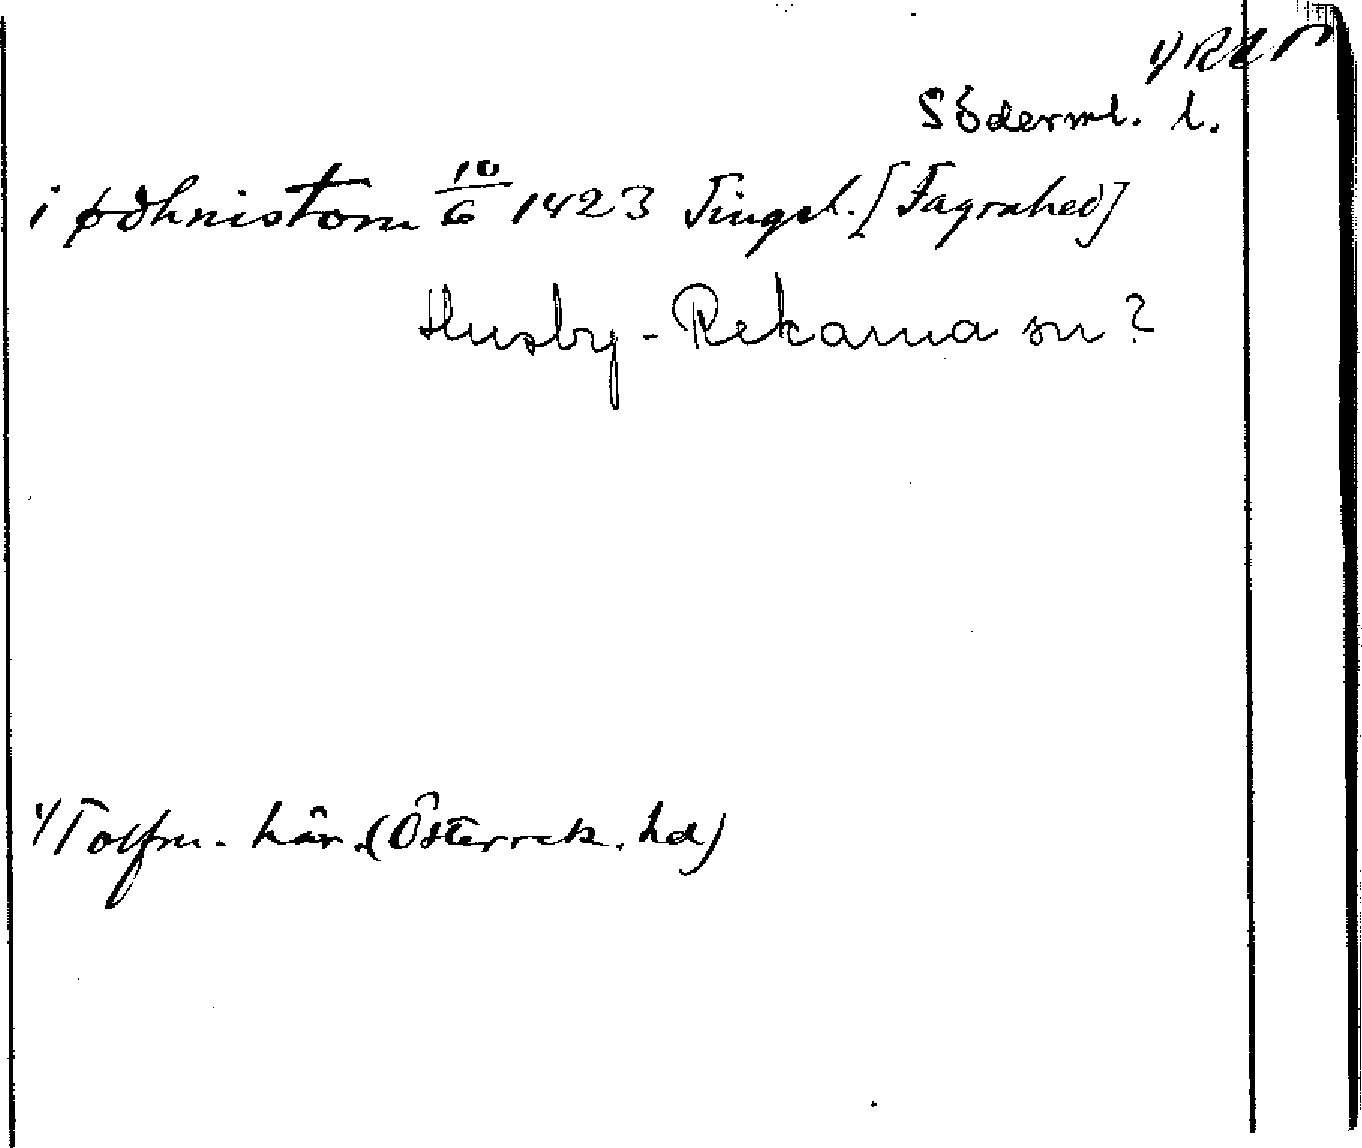 Söderml. l.
i øðhnistom 10/6 1423 Tingsl. [Fagrahed]
Husby-Rekarna sn?
1/ Tolfm. här. (Österrek. hd)